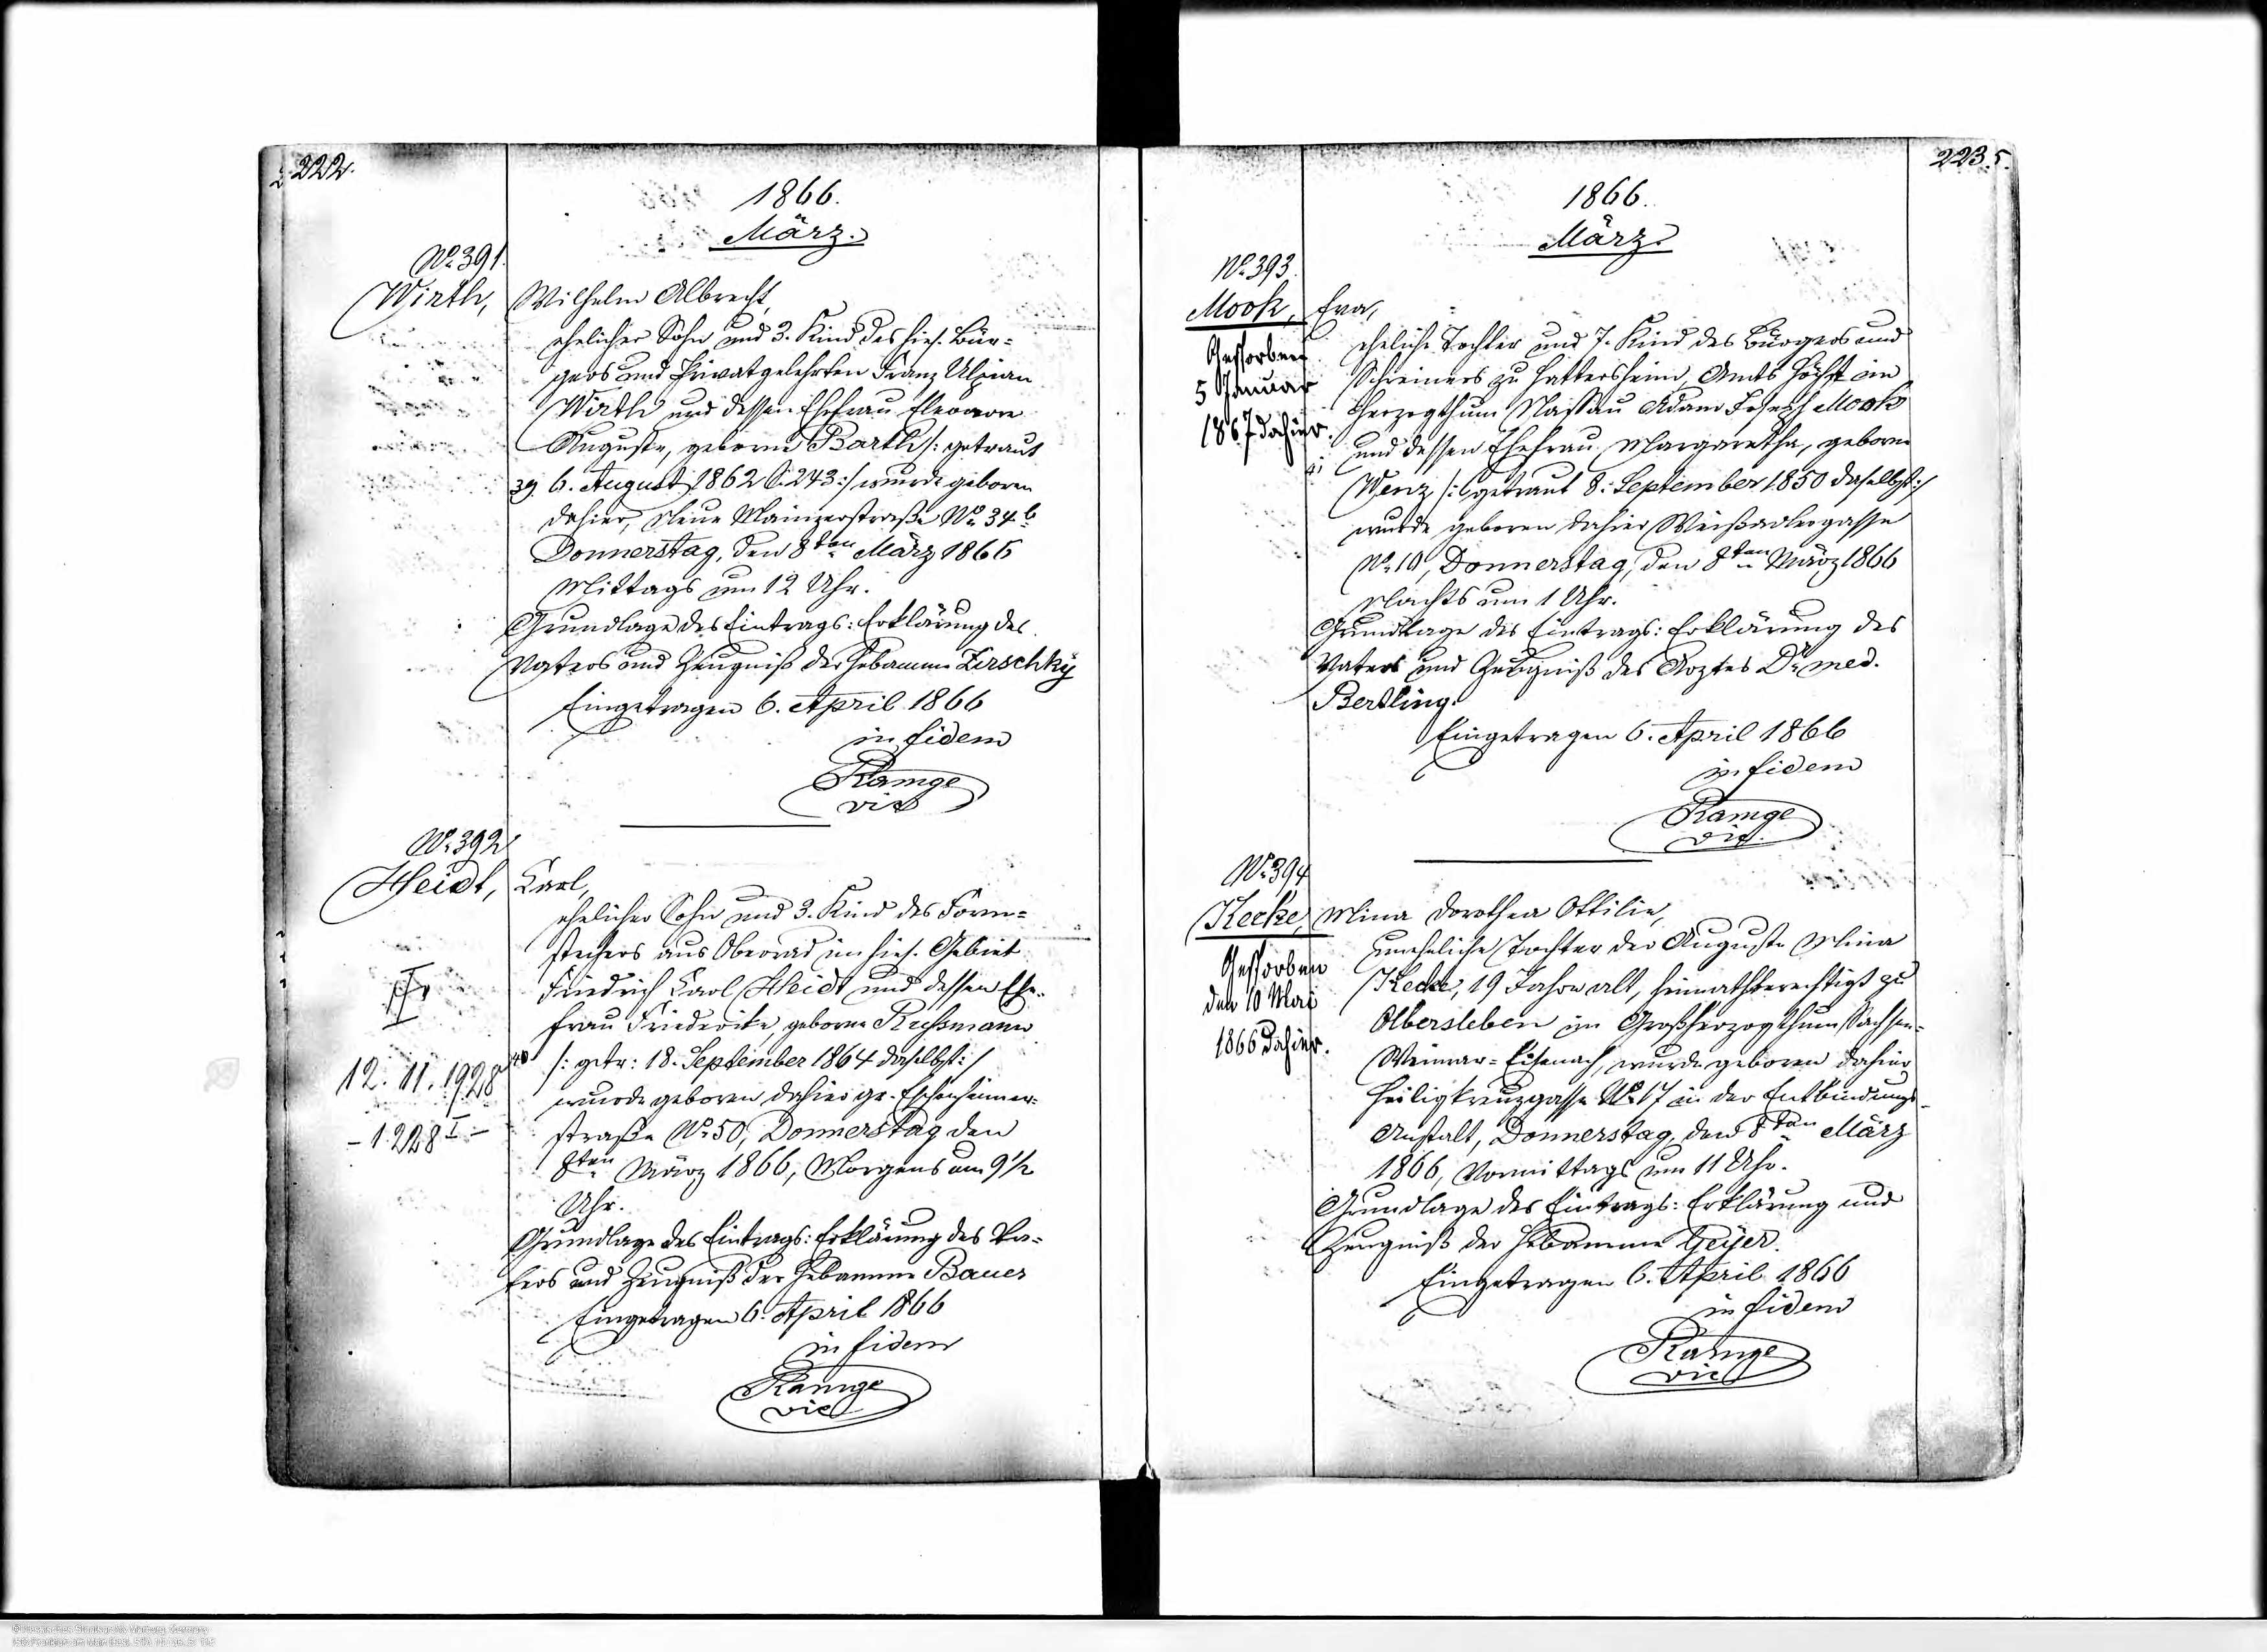 222.
1866.
März.
No. 391.
Wirth, Wilhelm Albrecht,
ehelicher Sohn und 3. Kind des hies. Bür-
gers und Privatgelehrten Franz Ulpian
Wirth und dessen Ehefrau Eleonore
Auguste, geborne Barth /: getraut
39. 6. August 1862 S. 243 :/ wurde geboren
dahier, Neue Mainzerstraße No. 34 b
Donnerstag, den 8ten März 1866
Mittags um 12 Uhr.
Grundlage des Eintrags: Erklärung des
Vaters und Zeugniß der Hebamme Zerschky
Eingetragen 6. April 1866
in fidem
Ramge
vic
No. 392
Heidt, Carl,
ehelicher Sohn und 3. Kind des Form-
stechers aus Oberrad im hies. Gebiet
Friedrich Carl Heidt und dessen Ehe-
frau Friedericke, geborne Russmann
40 /: getr: 18. September 1864 daselbst :/
wurde geboren dahier gr. Eschenheimer-
straße No. 50, Donnerstag den
8ten März 1866, Morgens um 9 1/2
Uhr.
Grundlage des Eintrags: Erklärung des Va-
ters und Zeugniß der Hebamme Bauer
Eingetragen 6. April 1866
in fidem
Ramge
vic
12. 11. 1928
- 1228 I -
223.
1866.
März.
No. 393.
Mook, Eva,
eheliche Tochter und 7. Kind des Bürgers und
Schreiners zu Hattersheim, Amts Höchst im
Herzogthum Nassau Adam Joseph Mook
und dessen Ehefrau Margaretha, geborne
Wenz /: getraut 8. September 1850 daselbst :/
wurde geboren dahier Weißadlergasse
No. 10, Donnerstag, den 8ten März 1866
Nachts um 1 Uhr.
Grundlage des Eintrags: Erklärung des
Vaters und Zeugniß des Arztes Dr. med.
Bertling.
Eingetragen 6. April 1866
in fidem
Ramge
vic.
Gestorben
5 Januar
1867 dahier.
No. 394
Kecke, Mina Dorothea Ottilie,
uneheliche Tochter der Auguste Mina
Kecke, 19 Jahre alt, heimathberechtigt zu
Olbersleben im Großherzogthum Sachsen-
Weimar-Eisenach, wurde geboren dahier
Heiligkreuzgasse No. 17 in der Entbindungs-
Anstalt, Donnerstag, den 8ten März
1866, Vormittags um 11 Uhr.
Grundlage des Eintrags: Erklärung und
Zeugniß der Hebamme Geyer.
Eingetragen 6. April 1866
in fidem
Ramge
vic
Gestorben
den 10 Mai
1866 dahier.